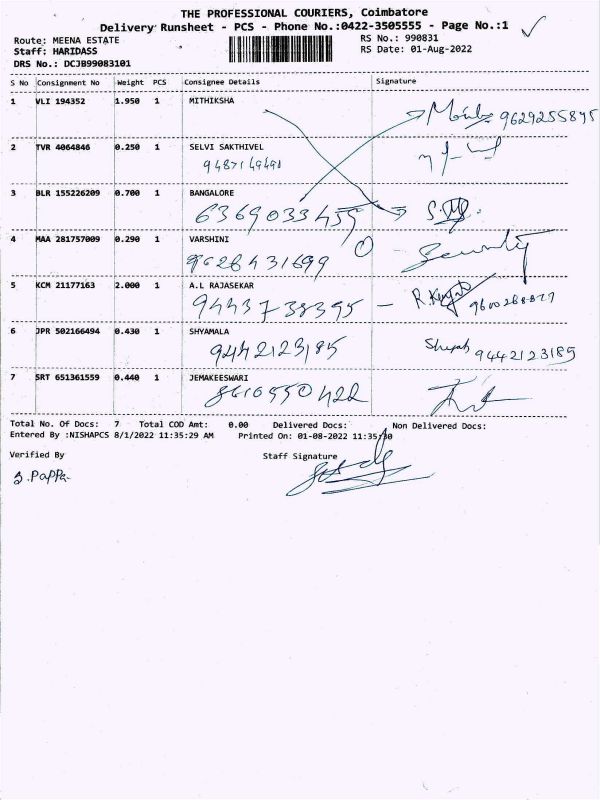 THE PROFESSIONAL COURIERS, Coimbatore
Delivery Runsheet - PCS - Phone No.:0422-3505555 - Page No.:1
Route: MEENA ESTATE RS No.: 990831
Staff: HARIDASS RS Date: 01-Aug-2022
DRS No.: DCJB99083101
S No Consignment No Weight PCS Consignee Details Signature
1 VLI 194352 1.950 1 MITHIKSHA
9629255845
2 TVR 4064846 0.250 1 SELVI SAKTHIVEL
9487149491
3 BLR 155226209 0.700 1 BANGALORE
6369033455
4 MAA 281757009 0.290 1 VARSHINI
9628431699 Security
5 KCM 21177163 2.000 1 A.L RAJASEKAR
9443738395 -
6 JPR 502166494 0.430 1 SHYAMALA
9442123185 9442123185
7 SRT 651361559 0.440 1 JEMAKEESWARI
8610550422
Total No. Of Docs: 7 Total COD Amt: 0.00 Delivered Docs: Non Delivered Docs:
Entered By :NISHAPCS 8/1/2022 11:35:29 AM Printed On: 01-08-2022 11:35:30
Verified By Staff Signature
S.Pappa